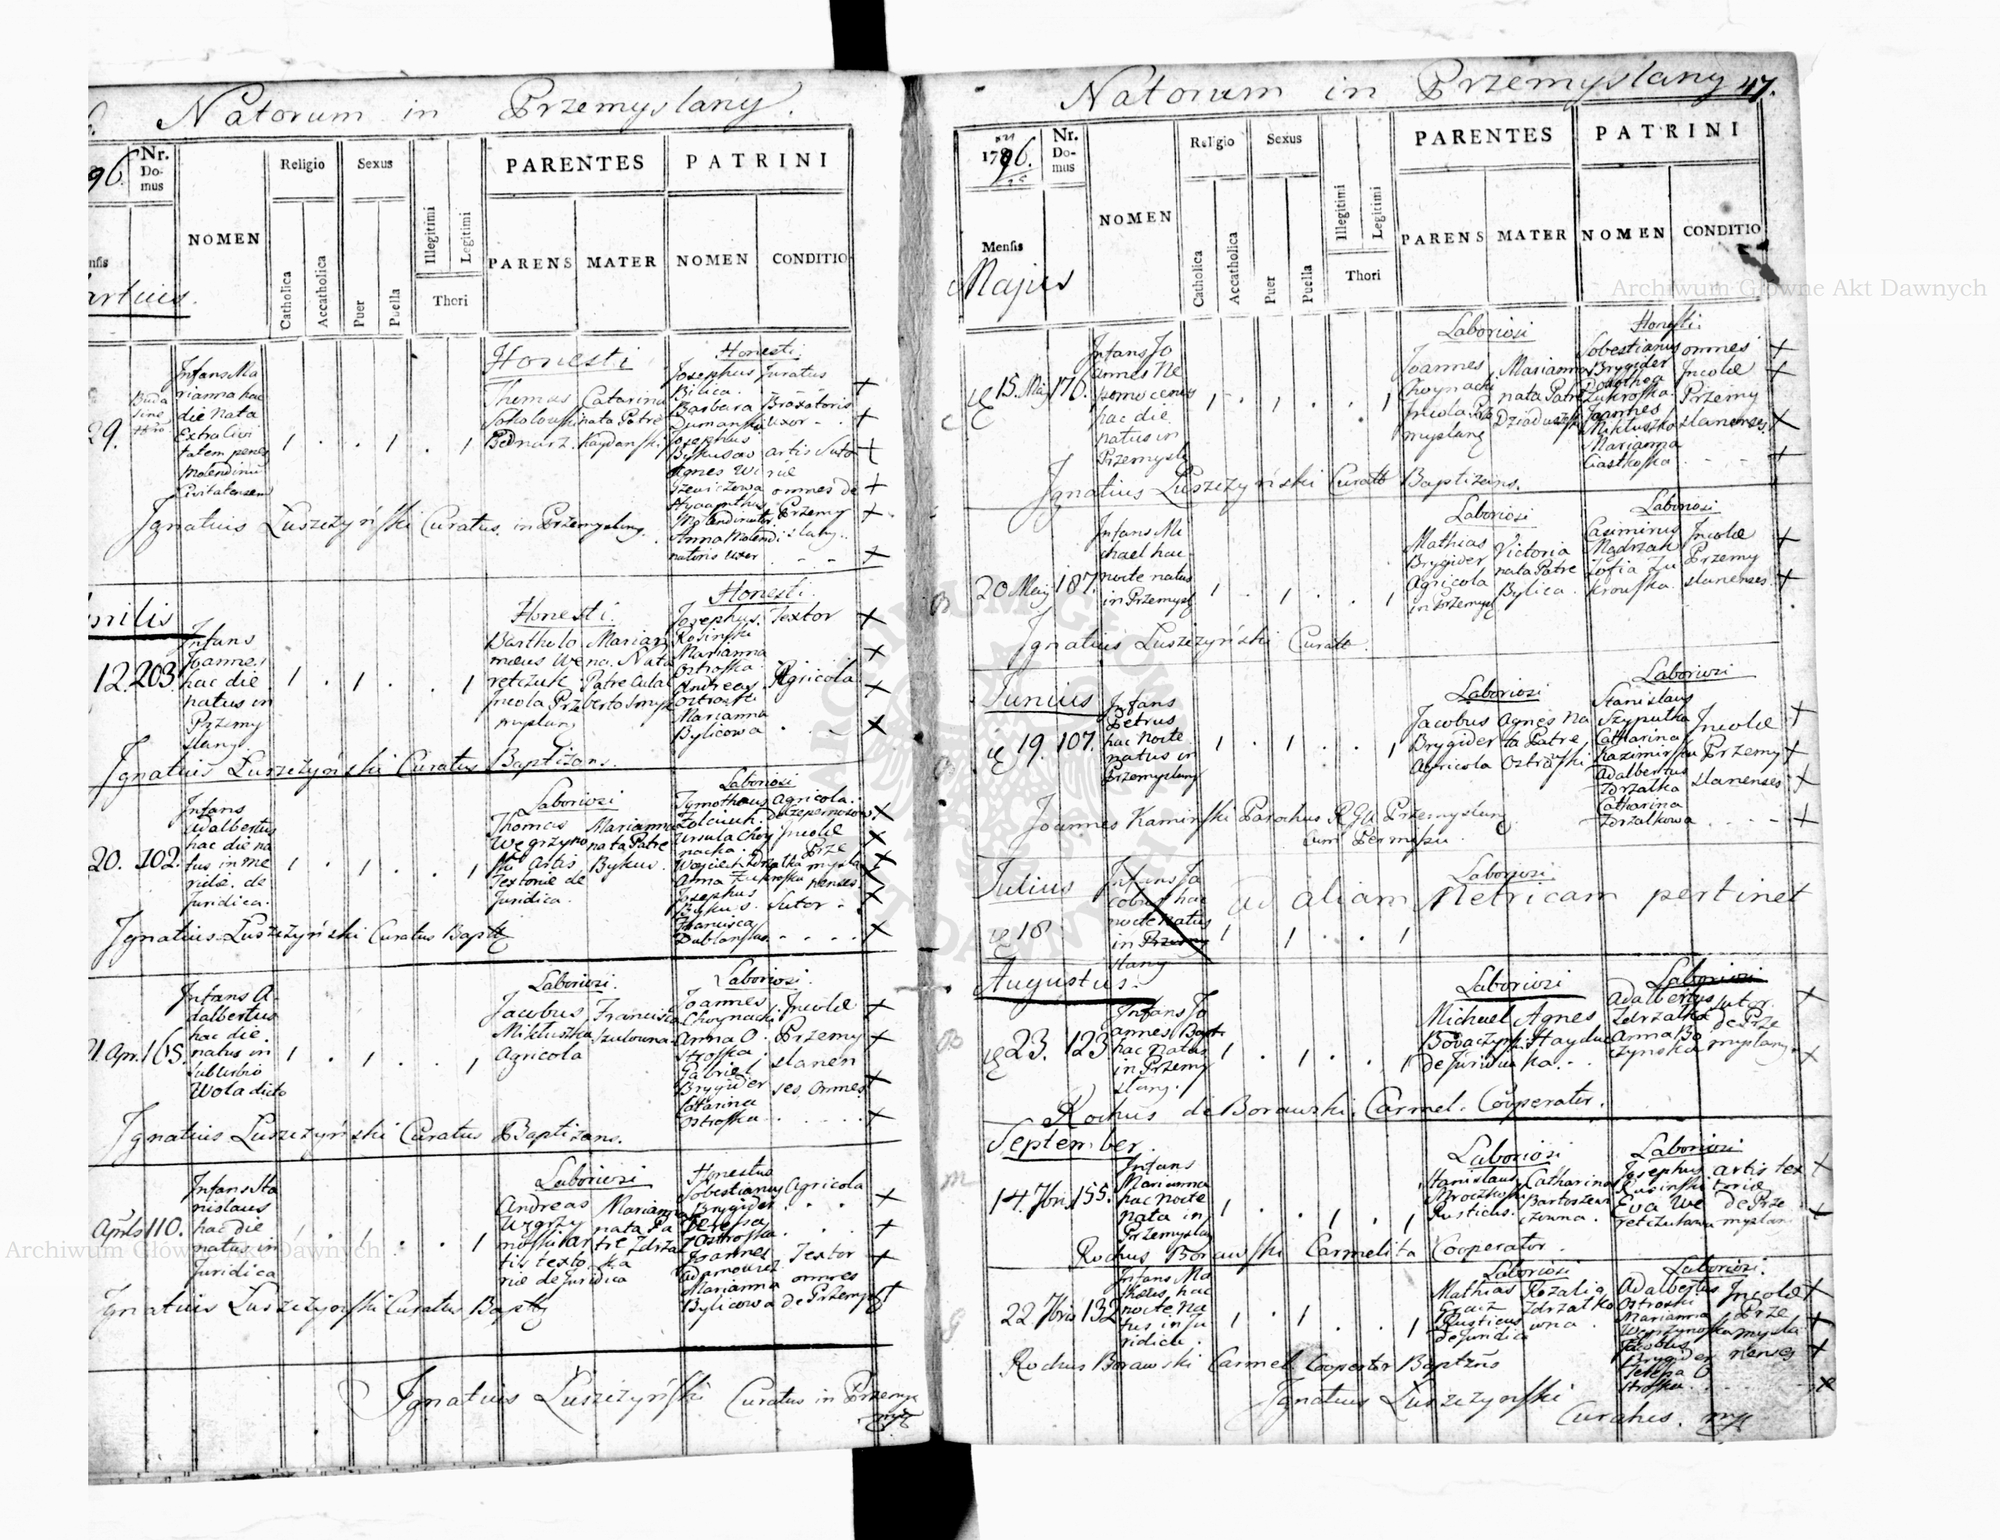 Natorum in Przemyslany.
96.
Nr. Domus
NOMEN
Religio
Sexus
PARENTES
PATRINI
Catholica
Accatholica
Puer
Puella
Illegitimi
Legitimi
Thori
PARENS
MATER
NOMEN
CONDITIO
29.
Infans Ma
rianna hac
die nata
Extra Civi
tatem penes
Molendinum
Civitatensem
1 . . 1 . 1
Honesti
Thomas
Bednarz.
Catarina
nata Patre
Honesti
Josephus
Bilica.
Barbara
Dumanska
Josephus
Agnes
Hyacinthus
Molendinator
Anna Molendi
natoris uxor
Juratus
Braxatoris
uxor
artis Suto
riæ
omnes de
Przemy
slany.
Ignatius Luszczyński Curatus in Przemyslany.
Aprilis
12. 203.
Infans
Joannes
hac die
natus in
Przemy
slany.
1 . 1 . . 1
Honesti.
Bartholo
meus We
retczuk
Incola Prze
myslany
Marian
na. Nata
Patre
Honesti.
Josephus
Rosinski
Marianna
Ostroska
Andreas
Marianna
Bylicowa
Textor
Agricola
Ignatius Luszczyński Curatus Baptizans.
20. 102.
Infans
Adalbertus
hac die na
tus in me
ridie. de
Juridica.
1 . 1 . . 1
Laboriosi
Thomas
Węgrzyno
artis
Textoriæ de
Juridica.
Marianna
nata Patre
Bykus.
Laboriosi
Tymotheus
Ursula Choy
nacka.
Josephus
Bykus.
Francisca
Agricola.
Incolæ
Prze
mysla
nenses.
Sutor
Ignatius Luszczyński Curatus Baptz
21 Apr. 165.
Infans A
dalbertus
hac die.
natus in
suburbio
Wola dicto
1 . 1 . . 1
Laboriosi.
Jacobus
Mikluszka
Agricola
Francisca
Laboriosi.
Joannes
Choynacki
Anna O
stroska
Gabriel
Brygider
Catarina
Ostroska.
Incolæ
Przemy
slanen
ses omnes
Ignatius Luszczyński Curatus Baptizans.
Aprilis 110.
Infans Sta
nislaus
hac die
natus in
Juridica
1 . 1 . . 1
Laboriosi
Andreas
Węgrzy
noski ar
tis texto
riæ de Juridica
Marianna
nata Pa
tre Zdrzal
ka
Honestus
Sobestianus
Brygider
Teressa
Ostroska.
Joannes
Adamowicz
Marianna
Bylicowa
Agricola
Textor
omnes
de Przemysl
Ignatius Luszczyński Curatus Baptz
Ignatius Luszczyński Curatus in Przemys
Natorum in Przemyslany 47.
1796.
Nr. Domus
Mensis
Majus
NOMEN
Religio
Sexus
PARENTES
PATRINI
Catholica
Accatholica
Puer
Puella
Illegitimi
Legitimi
Thori
PARENS
MATER
NOMEN
CONDITIO
15. Maj 176.
Infans Jo
annes Ne
pomocenus
hac die
natus in
Przemysly
1 . 1 . . 1
Laboriosi
Joannes
Choynacki
Incola Prze
myslany
Marianna
nata Patre
Honesti.
Sobestianus
Brygider
Joannes
Mikluszko
Marianna
Ciastkoska
omnes
Incolæ
Przemy
slanenses.
Ignatius Luszczyński Curatt Baptizans.
20 May 187.
Infans Mi
chael hac
nocte natus
in Przemysly
1 . 1 . . 1
Laboriosi
Mathias
Brygider
Agricola
in Przemysly
Victoria
nata Patre
Bylica.
Laboriosi
Casimirus
Mądrzak
Zofia Zu
krowska.
Incolæ
Przemy
slanenses.
Ignatius Luszczyński Curatt.
Junius
19. 107.
Infans
Petrus
hac Nocte
natus in
Przemyslany
1 . 1 . . 1
Laboriosi
Jacobus
Brygider
Agricola
Agnes Na
ta Patre
Ostroski
Laboriosi
Stanislaus
Szyputka
Catharina
Kazimirska
Adalbertus
Zdrzalka
Catharina
Zdrzalkowa
Incolæ
Przemy
slanenses
Joannes Kaminski Parochus R. G. U. Przemyslany
cum Permissu.
Julius
18
Infans Ja
cobus hac
nocte natus
in Przemy
slany
1 1 . . 1
Laboriosi.
ad aliam Metricam pertinet
Augustus.
23. 123
Infans Jo
annes Bapt.
hac natus
in Przemy
slany.
1 . 1 . . 1
Laboriosi
Michael
de Juridica
Agnes
Haydu
ka.
Laboriosi
Adalbertus
Zdrzalka
Anna Bo
zynska
sutor.
de Prze
myslany
Rochus de Borawski. Carmel. Cooperator.
September.
14. 7bris 155.
Infans
Marianna
hac Nocte
Nata in
Przemyslany
1 . . 1 . 1
Laboriosi
Stanislaus
Mroczkoski
Rusticus.
Catharina
Bartoszew
czowna.
Laboriosi
Josephus
Rusinski
Eva We
retczukowa
artis tex
toriæ
de Prze
myslan
Rochus Borawski Carmelita Cooperator.
22. 7bris 132
Infans Ma
theus, hac
nocte Na
tus in Ju
ridica.
1 . 1 . . 1
Laboriosi
Mathias
Gracz
Rusticus
de Juridica
Rozalia
Zdrzalko
wna.
Laboriosi.
Adalbertus
Ostroski
Marianna
Wegrzynoska
Jacobus
Brygider
Teressa O
stroska.
Incolæ
Prze
mysla
nenses
Rochus Borawski Carmel Cooperator Baptzns
Ignatius Luszczyński
Curatus. mp
Archiwum Główne Akt Dawnych
Archiwum Główne Akt Dawnych
ARCHIWUM GŁÓWNE AKT DAWNYCH